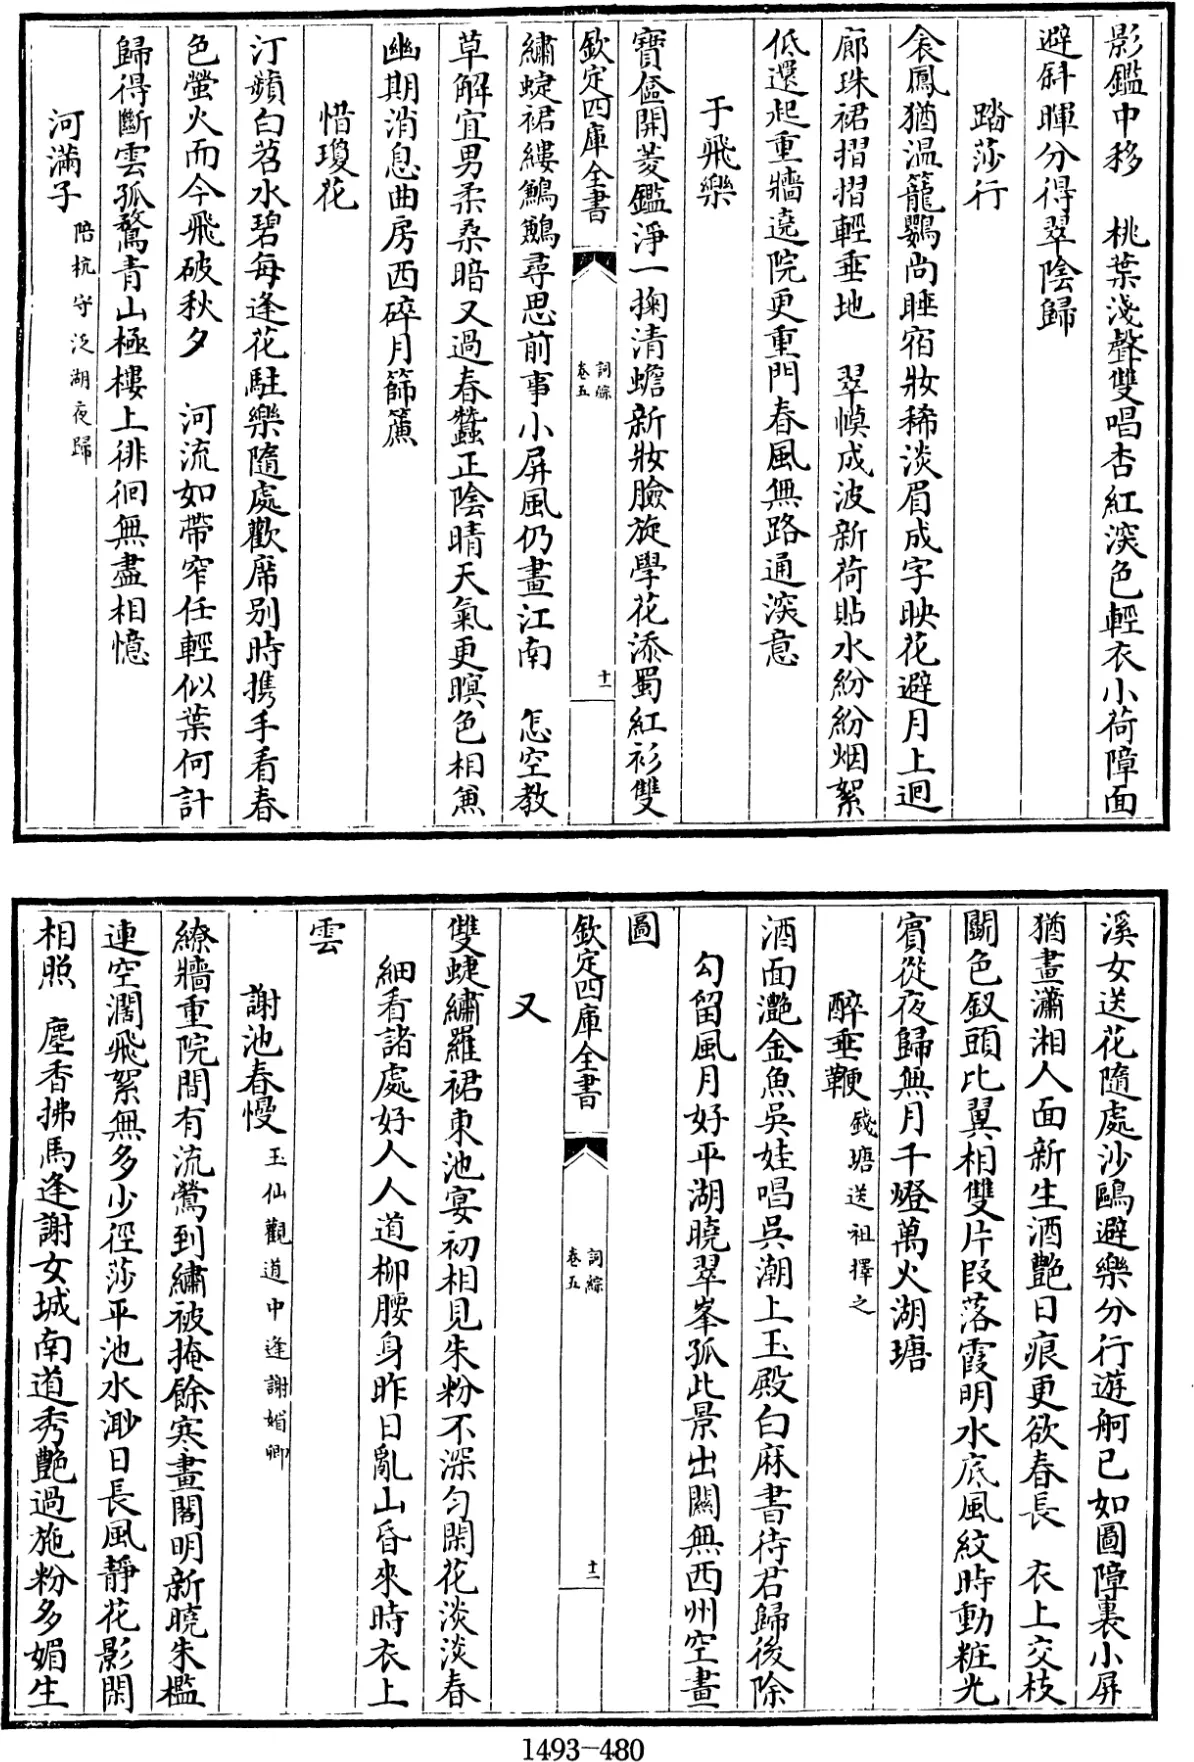 影鑑中移　桃葉淺聲雙唱杏紅深色輕衣小荷障面
避斜暉分得翠陰歸
踏莎行
衾鳳猶溫籠鸚尚睡宿妝稀淡眉成字映花避月上迴
廊珠裙摺摺輕垂地　翠幙成波新荷貼水紛紛烟絮
低還起重牆遶院更重門春風無路通深意
于飛樂
寶奩開菱鑑淨一掬清蟾新妝臉旋學花添蜀紅衫雙
欽定四庫全書
詞綜
卷五
十一
繡蜨裙縷鶼鶼尋思前事小屏風仍畫江南　怎空教
草解宜男柔桑暗又過春蠶正陰晴天氣更暝色相兼
幽期消息曲房西碎月篩簾
惜瓊花
汀蘋白苕水碧每逢花駐樂隨處歡席别時携手看春
色螢火而今飛破秋夕　河流如帶窄任輕似葉何計
歸得斷雲孤鶩青山極樓上徘徊無盡相憶
河滿子 陪杭守泛湖夜歸
溪女送花隨處沙鷗避樂分行遊舸已如圖障裏小屏
猶畫瀟湘人面新生酒艷日痕更欲春長　衣上交枝
鬭色釵頭比翼相雙片段落霞明水底風紋時動粧光
賓從夜歸無月千燈萬火湖塘
醉垂鞭 錢塘送祖擇之
酒面灩金魚吳娃唱吳潮上玉殿白麻書待君歸後除
勾留風月好平湖曉翠峯孤此景出關無西州空畫
圖
欽定四庫全書
詞綜
卷五
十二
又
雙蜨繡羅裙東池宴初相見朱粉不深勻閑花淡淡春
細看諸處好人人道柳腰身昨日亂山昏來時衣上
雲
謝池春慢 玉仙觀道中逢謝媚卿
繚牆重院間有流鶯到繡被掩餘寒畫閣明新曉朱檻
連空濶飛絮無多少徑莎平池水渺日長風靜花影閑
相照　塵香拂馬逢謝女城南道秀艷過施粉多媚生
1493—480